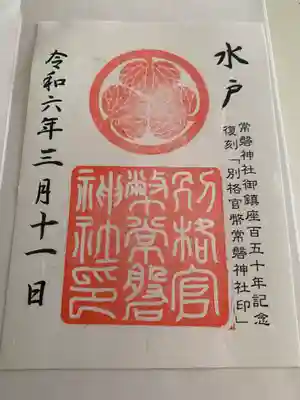 水戸
常磐神社御鎮座百五十年記念
復刻「別格官幣常磐神社印」
別格官
幣常磐
神社印
令和六年三月十一日